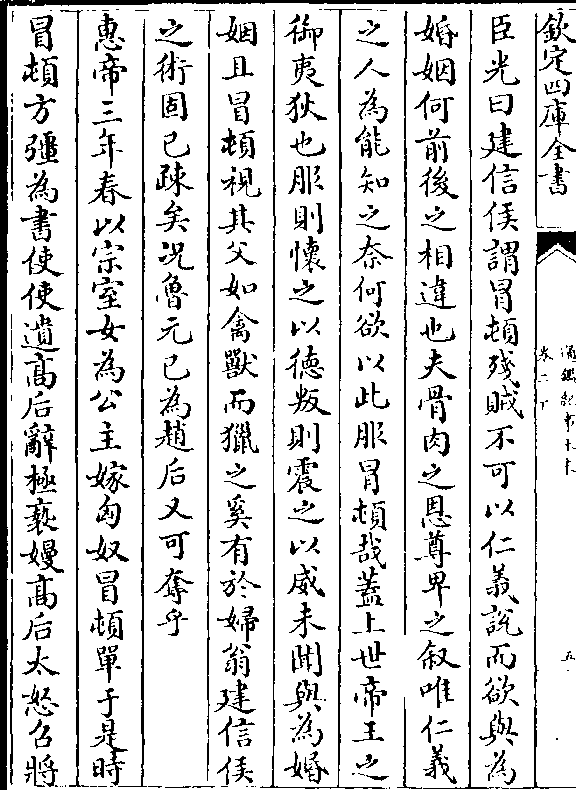 欽定四庫全書
通鑑紀事本末
卷二下
五
臣光曰建信侯謂冒頓殘賊不可以仁義說而欲與為
婚姻何前後之相違也夫骨肉之恩尊卑之敘唯仁義
之人為能知之奈何欲以此服冒頓哉蓋上世帝王之
御夷狄也服則懷之以德叛則震之以威未聞與為婚
姻且冒頓視其父如禽獸而獵之奚有於婦翁建信侯
之術固已疎矣况魯元已為趙后又可奪乎
惠帝三年春以宗室女為公主嫁匈奴冒頓單于是時
冒頓方彊為書使使遺高后辭極褻嫚高后太怒召將